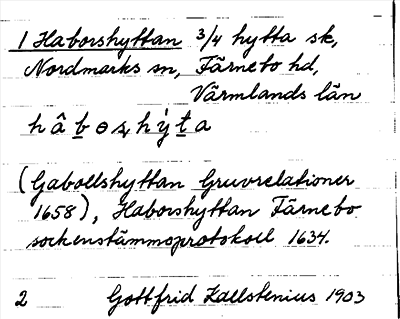 1 Haborshyttan 3/4 hytta sk,
Nordmarks sn, Färnebo hd,
Värmlands län
(Gabollshyttan Gruvrelationer
1658), Haborshyttan Färnebo
sockenstämmoprotokoll 1634.
2 Gottfrid Kallstenius 1903